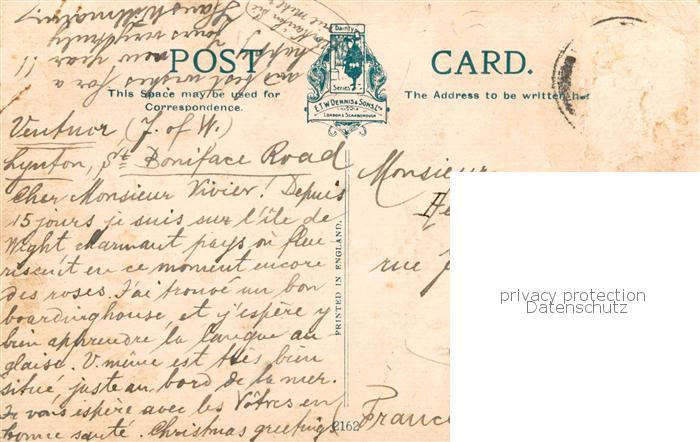 POST CARD.
This Space may be used for
Correspondence.
The Address to be written her
Dainty
Series
E.T.W. DENNIS & SONS, LTD
LONDON & SCARBOROUGH
PRINTED IN ENGLAND.
Ventnor (J. of W.)
Lynton, St Boniface Road
Cher Monsieur Vivier! Depuis
15 jours je suis sur l'île de
Wight charmant pays où fleu-
rissent en ce moment encore
des roses. J'ai trouvé un bon
boardinghouse et j'espère y
bien apprendre la langue an-
glaise. V. même est très bien
situé juste au bord de la mer.
Je vous espère avec les Vôtres en
bonne santé. Christmas greetings
and best wishes for a
happy new year!!
Yours very truly
Monsieur
rue
France
2162
privacy protection
Datenschutz